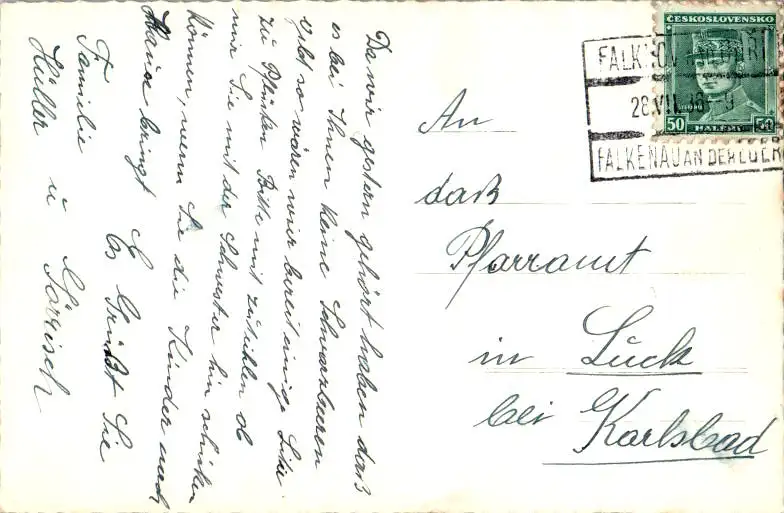 Da wir gestern gehört haben daß
es bei Ihnen keine Schwarzbeeren
gibt so wären wir bereit einige Liter
zu Pflücken Bitte mit zuteihlen ob
wir Sie mit der Schwester hin schicken
können, wenn Sie die Kinder nach
Hause bringt Es Grüßt Sie
Familie
Hüller u
An
daß
Pfarramt
in Luck
bei Karlsbad
ČESKOSLOVENSKO
50 HALÉŘŮ 50
FALKENAU AN DER EGER